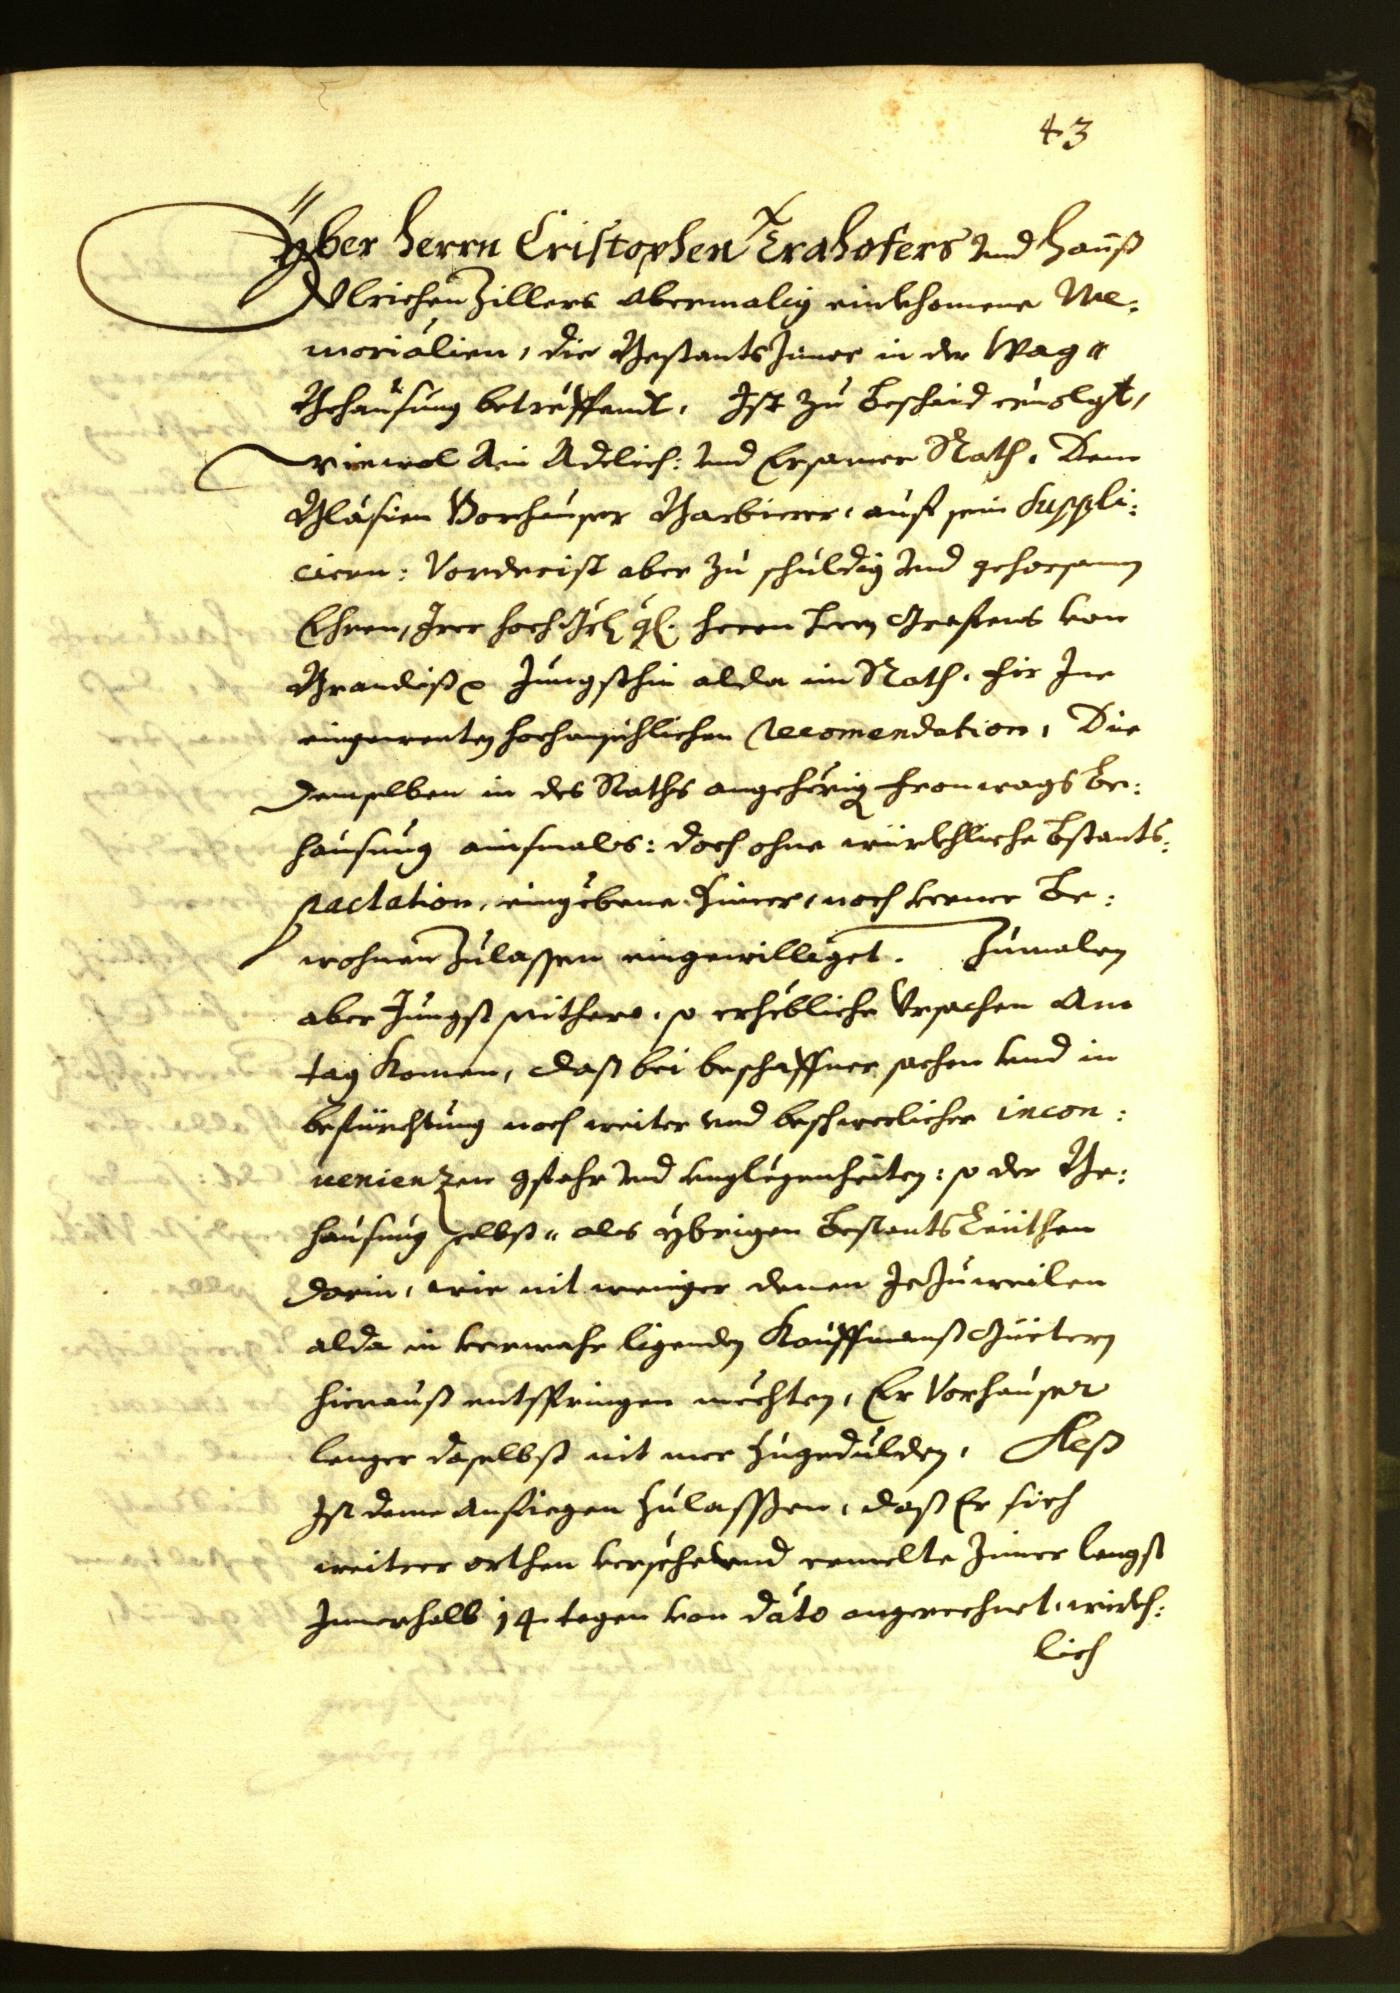 43
Yber herrn Cristophen Trahofers vnd Hannß
Vlrichen Zillers abermalig einkhomene Me:
morialien, die Bestants Zimer in der Wag
Behausung betreffendt, Ist zu beschaid ervolgt,
wiewol Ain Adelich: vnd Ersamer Rath, Dem
Bläsien Vorhauser Barbierer, auf sein Suppli:
ciern: Vorderist aber zu schuldig vnd gehorsamen
Ehren, Irer hoch Grl: gl: herrn herrn Graffens von
Brandiß Jungsthin alda im Rath, fir Ine
eingewenten hochansechlichen recomendation, Die
demselben in des Raths angehörig Fronwags be:
hausung ainsmals: doch ohne würkhliche bstants:
pactation, eingebene Zimer, noch verner be:
wohnen zulassen eingewilliget. Zumalen
aber Jungst seithero, so erhebliche Vrsachen Am
tag komen, daß bei beschaffner sachen vnd in
befürchtung noch weiter vnd beschwerlicher incon:
uenienzen gfahr vnd vnglegenheiten: so der Be:
hausung selbst als ybrigen bestants Leüthen
darin, wie nit weniger denen Jezuweilen
alda in verwahr ligenden Kauffmanß Güetern
hierauß entspringen mechten, Er Vorhauser
lenger daselbst nit mer zugedulden, Alß
Ist deme anfiegen zulassen, daß Er sich
weiterer orthen versehe vnd ermelte Zimer lengst
Innerhalb 14 tagen von dato angerechnet, würkh:
lich